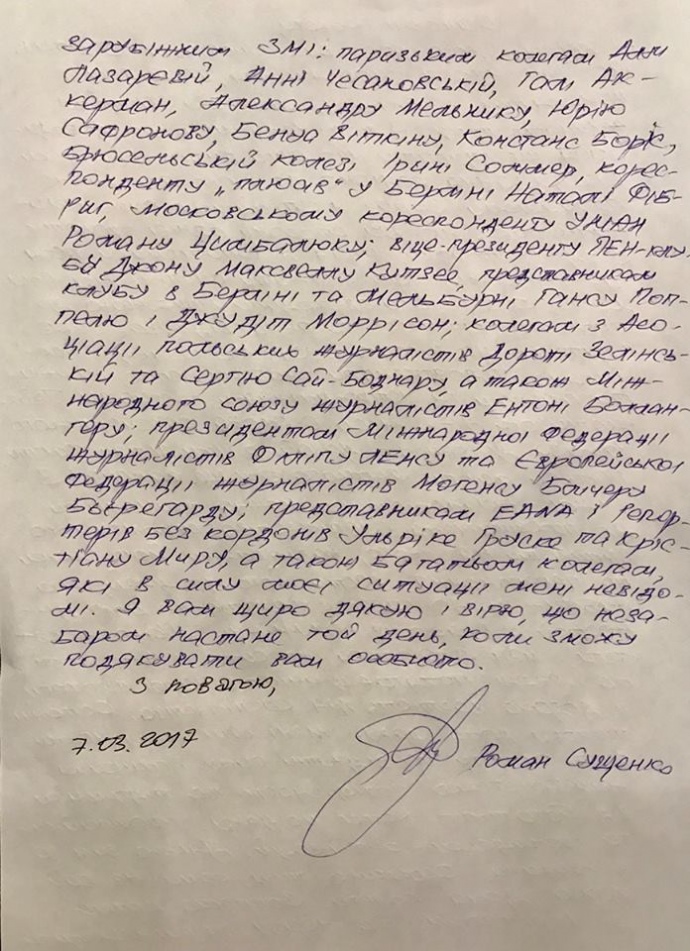 зарубіжним ЗМІ: паризьким колегам Алли
Лазаревій, Анні Чесановській, Галі Ак-
керман, Александру Мельнику, Юрію
Сафронову, Бенуа Віткіну, Констанс Борік,
брюсельській колезі Ірині Соммер, корес-
понденту „плюсів“ у Берліні Наталі Фіб-
риг, московському кореспонденту УНІАН
Роману Цимбалюку; віце-президенту ПЕН-клу-
бу Джону Максвеллу Кутзее, представникам
клубу в Берліні та Мельбурні Гансу Поп-
пелю і Джудіт Моррісон; колегам з Асо-
ціації польських журналістів Дороті Зелінсь-
кій та Сергію Сай-Боднару, а також Між-
народного союзу журналістів Ентоні Беллан-
геру; президентам Міжнародної Федерації
журналістів Філіпу Ленсу та Європейської
Федерації журналістів Могенсу Блічеру
Б'єрегарду; представникам EANA і Репор-
терів без кордонів Ульріке Груске та Кріс-
тіану Миру, а також багатьом колегам,
які в силу моєї ситуації мені невідо-
мі. Я вам щиро дякую і вірю, що неза-
баром настане той день, коли зможу
подякувати вам особисто.
З повагою,
7.03.2017
Роман Сущенко